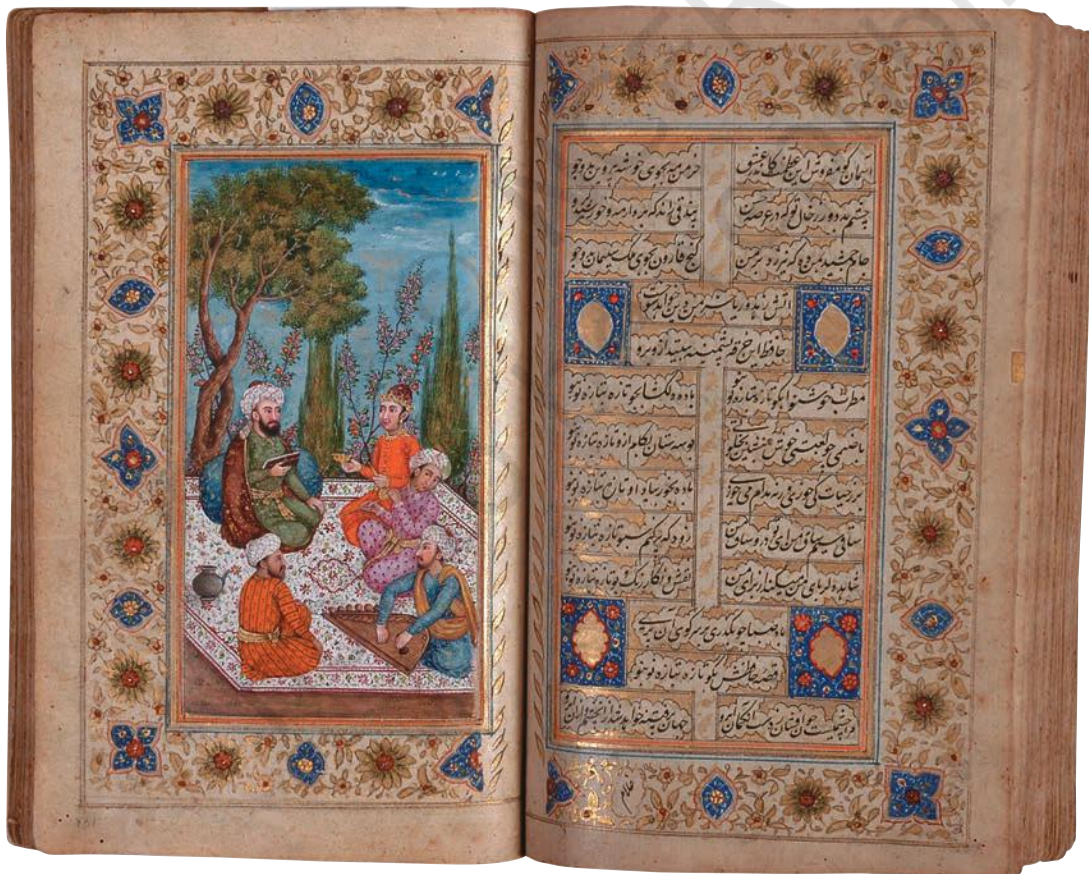 آسمان گو مفروش این عظمت کاندر عشق خرمن مه بجوی خوشه پروین بدو جو
چشم بد دور ز خال تو که در عرصه حسن بیدقی راند که برد از مه و خورشید گرو
جام جمشید بمن ده که نیرزد بر من گنج قارون بجوی ملک سلیمان بدو جو
آتش زهد و ریا خرمن دین خواهد سوخت
حافظ این خرقه پشمینه بینداز و برو
مطرب خوشنوا بگو تازه بتازه نو بنو باده دلکشا بجو تازه بتازه نو بنو
با صنمی چو لعبتی خوش بنشین بخلوتی بوسه ستان بکام ازو تازه بتازه نو بنو
بر ز حیات کی خوری گر نه مدام می خوری باده بخور بیاد او تازه بتازه نو بنو
ساقی سیم ساق من زود که پر کنم سبو تازه بتازه نو بنو
شاهد دلربای من میکند از برای من نقش و نگار و رنگ و بو تازه بتازه نو بنو
باد صبا چو بگذری بر سر کوی آن پری
قصه حافظش بگو تازه بتازه نو بنو
مرا چشمیست خون افشان ز دست آن کمان ابرو جهان
غلام